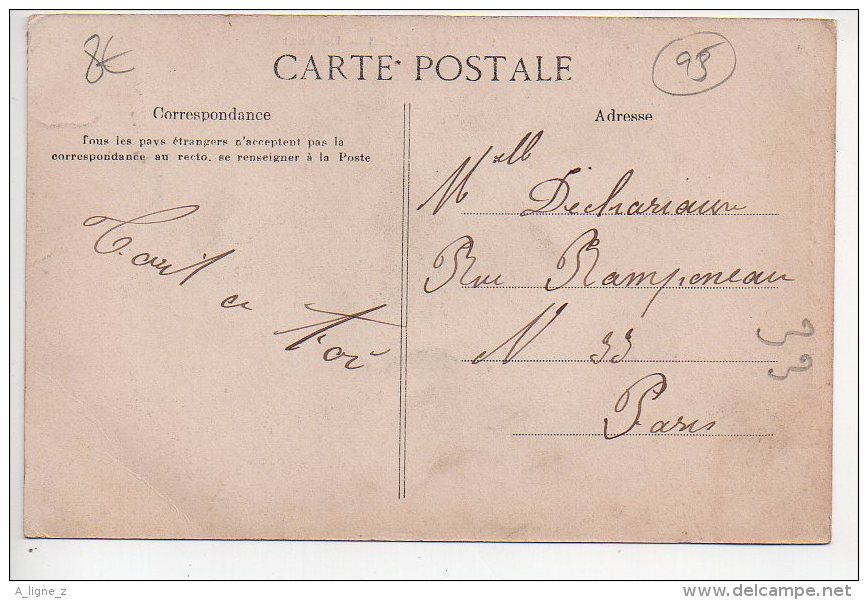 8€
CARTE POSTALE
95
Correspondance
Tous les pays étrangers n'acceptent pas la
correspondance au recto, se renseigner à la Poste
Tout
a
toi
Adresse
Mell
Rue Ramponeau
N 33
Paris
33
A_ligne_z
www.delcampe.net